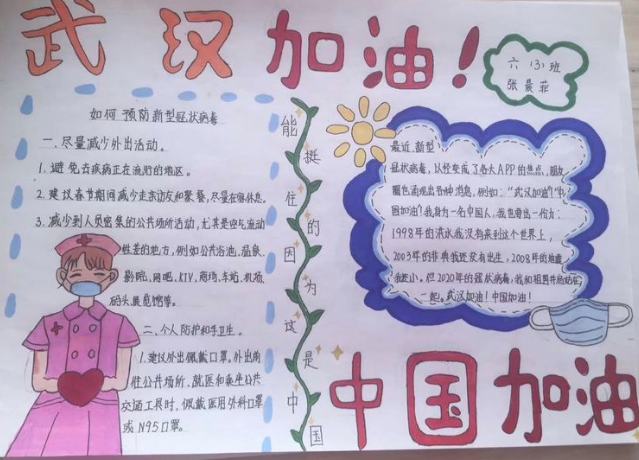 武汉加油！
六（3）班
张晨菲
如何预防新型冠状病毒
一、尽量减少外出活动。
1. 避免去疾病正在流行的地区。
2. 建议春节期间减少走亲访友和聚餐，尽量在家休息。
3. 减少到人员密集的公共场所活动，尤其是空气流动
性差的地方，例如公共浴池、温泉、
影院、网吧、KTV、商场、车站、机场、
码头、展览馆等。
二、个人防护和手卫生。
1. 建议外出佩戴口罩。外出前
往公共场所、就医和乘坐公共
交通工具时，佩戴医用外科口罩
或N95口罩。
能挺住的因为这是中国
最近，新型
冠状病毒，以经变成了各大APP的焦点，朋友
圈也涌现出各种消息，例如："武汉加油""中
国加油"我身为一名中国人，我也奇出一份力：
1998年的洪水我没有来到这个世界上，
2003年的非典我还没有出生，2008年的地震
我还小。但2020年的冠状病毒，我和祖国并肩站在
一起。武汉加油！中国加油！
中国加油